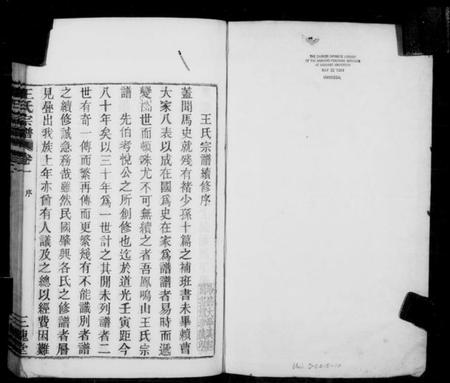 王氏宗譜續修序
蓋聞馬史就殘有褚少孫十篇之補班書未畢賴曹
大家八表以成在國爲史在家爲譜譜者易時而遞
變隔世而頓殊尤不可無續之者吾鳳鳴山王氏宗
譜 先伯考悅公之所創修也迄於道光壬寅距今
八十年矣以三十年爲一世計之其閒未列譜者二
世有奇一傳而繁再傳而更繁幾有不能識別者譜
之續修誠急務哉雖然民國肇興各氏之修譜者層
見疊出我族上年亦曾有人議及之總以經費困難
王氏宗譜 卷一 序 三槐堂
THE CHINESE-JAPANESE LIBRARY
OF THE HARVARD-YENCHING INSTITUTE
AT HARVARD UNIVERSITY